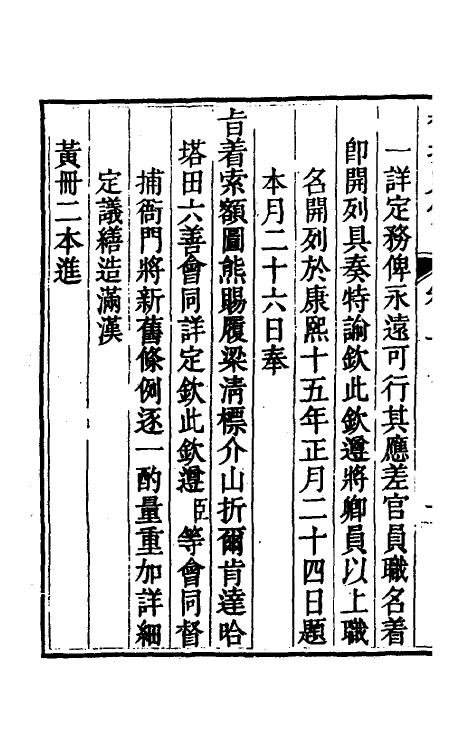 一詳定務俾永遠可行其應差官員職名着
卽開列具奏特諭欽此欽遵將卿員以上職
名開列於康熙十五年正月二十四日題
本月二十六日奉
旨着索額圖熊賜履梁淸標介山折爾肯達哈
塔田六善會同詳定欽此欽遵臣等會同督
捕衙門將新舊條例逐一酌量重加詳細
定議繕造滿漢
黃冊二本進